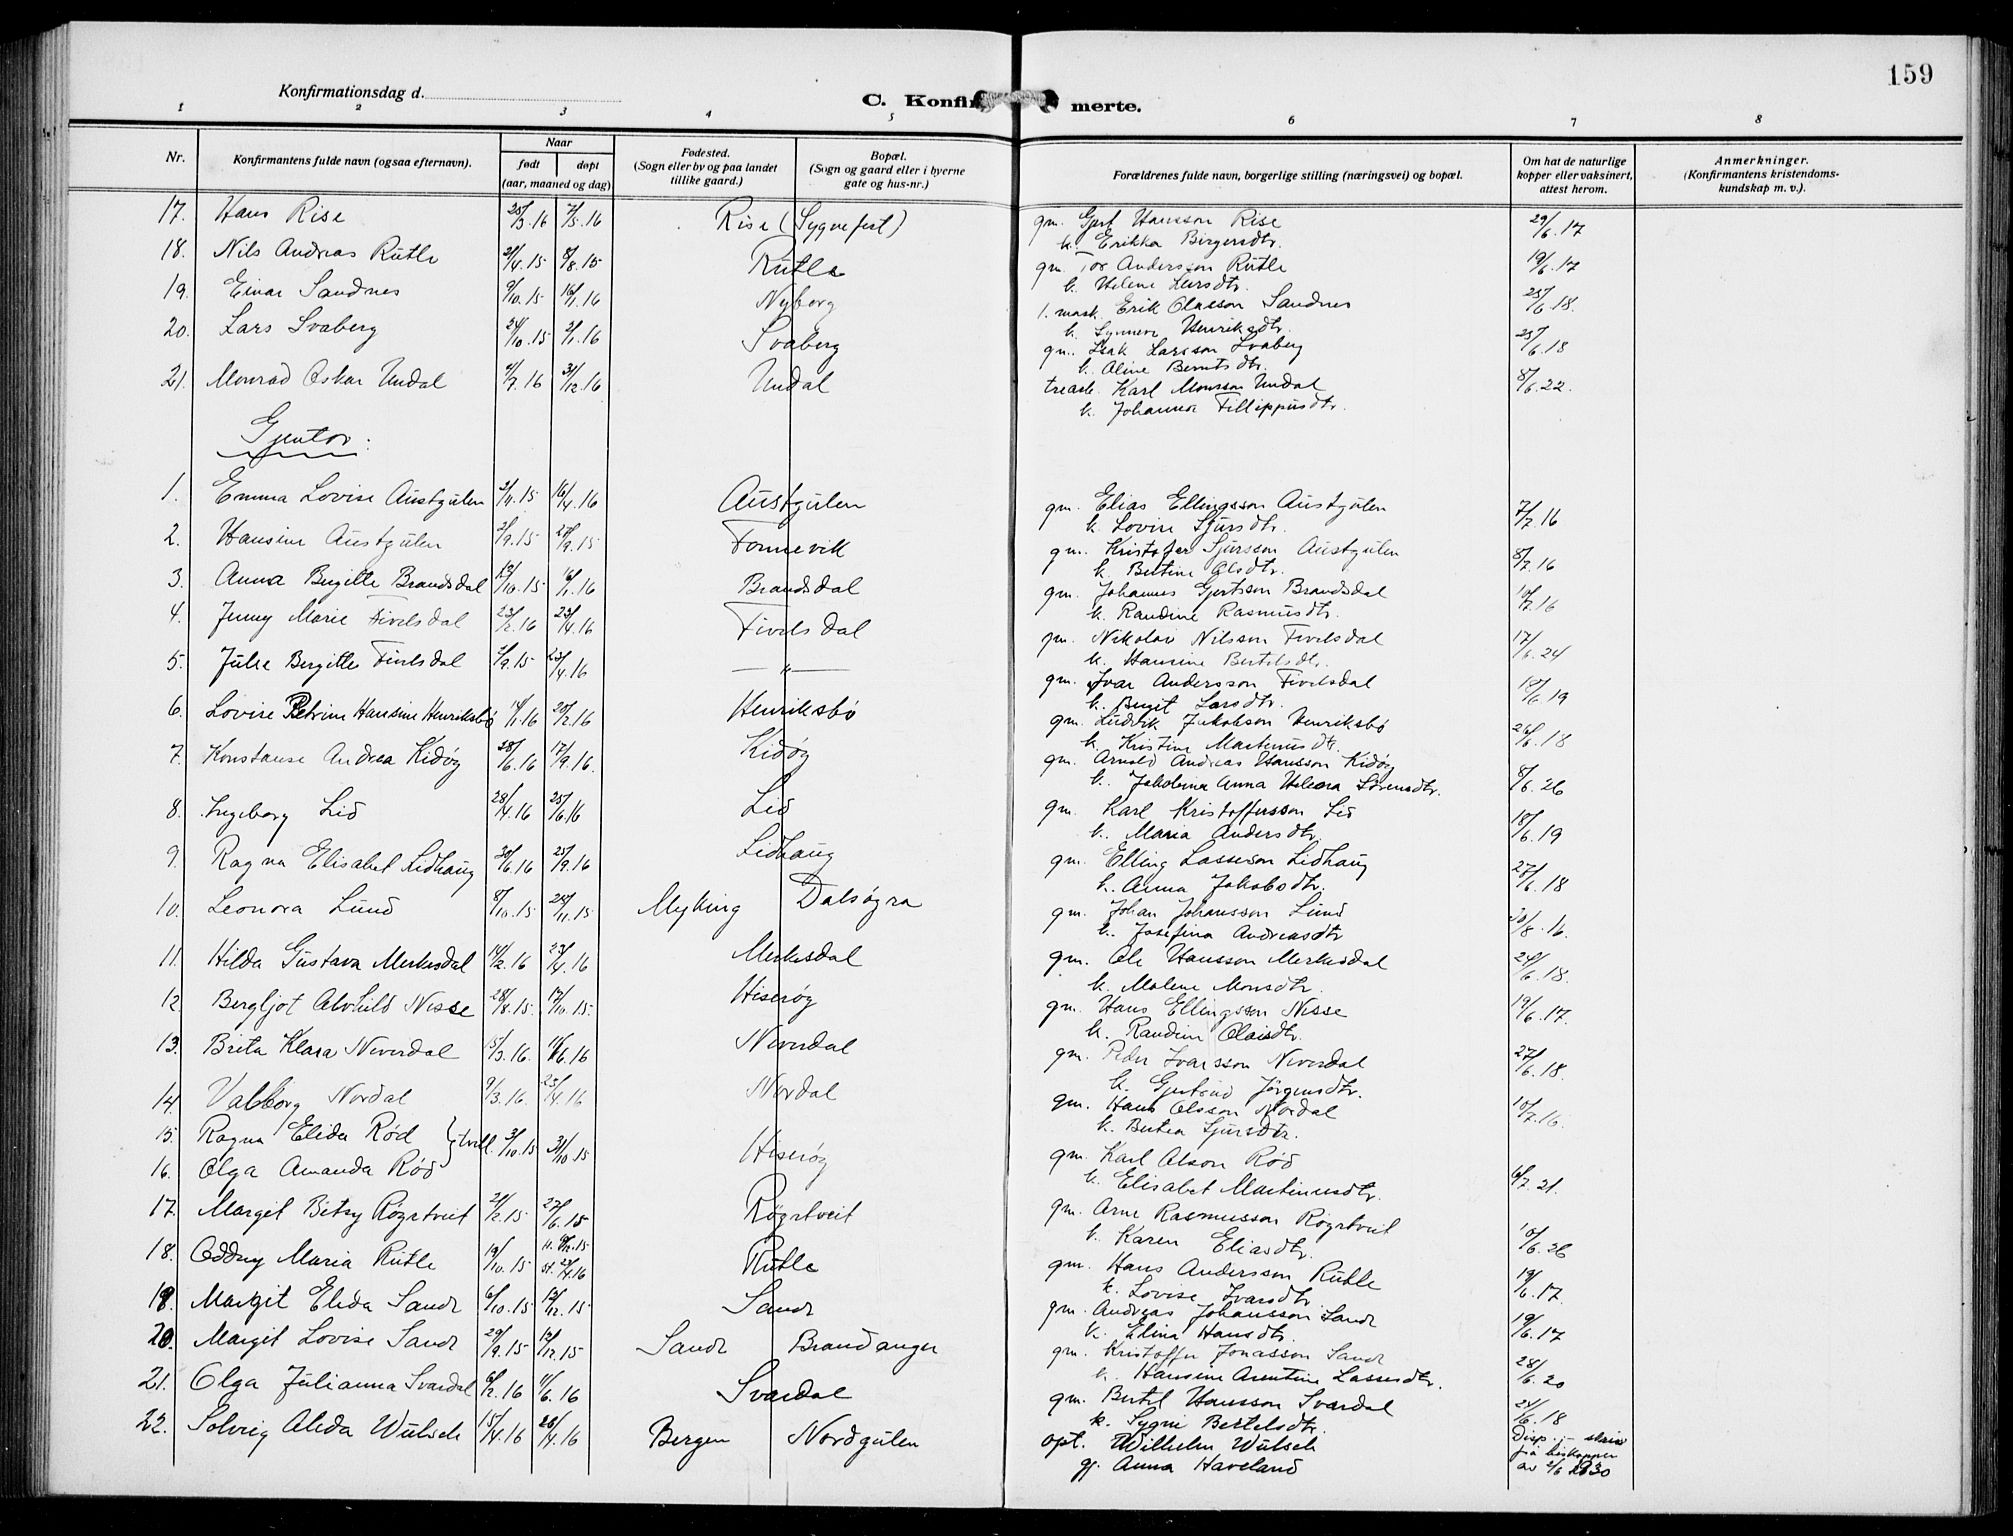 159
Konfirmationsdag d.
C. Konfir merte.
1 2 3 4 5 6 7 8
Nr. Konfirmantens fulde navn (ogsaa efternavn). Naar født døpt (aar, maaned og dag) Fødested. (Sogn eller by og paa landet tillike gaard.) Bopæl. (Sogn og gaard eller i byerne gate og hus-nr.) Forældrenes fulde navn, borgerlige stilling (næringsvei) og bopæl. Om hat de naturlige kopper eller vaksinert, attest herom. Anmerkninger. (Konfirmantens kristendoms-kundskap m. v.).
17. Hans Rise 25/3.16 7/5.16 Rise (Sygnefest) gm. Gjert Hansson Rise 29/6.17
k. Erikka Birgersdtr.
18. Nils Andreas Rutle 21/4.15 8/8.15 Rutle gm. Tor Andersson Rutle 19/6.17
k. Helene Larsdtr.
19. Einar Sandnes 9/10.15 16/1.16 Nyborg f. mask. Erik Olasson Sandnes 25/6.18.
k. Synneva Henriksdtr.
20. Lars Svaberg 24/10.15 2/1.16 Svaberg gm. Isak Larsson Svaberg 25/6.18
k. Aline Berntsdtr.
21. Monrad Oskar Undal 4/7.16 31/12.16 Undal Karl Monsson Undal 8/6.22.
k. Johanna Fillippusdtr.
Gjentor:
1. Emma Lovise Austgulen 3/4.15 16/4.16 Austgulen gm. Elias Ellingsson Austgulen 7/7.16
k. Lovise Sjursdtr.
2. Hansine Austgulen 2/9.15 27/9.15 Fonnevik gm. Kristofer Sjursson Austgulen 8/7.16
k. Bertine Olsdtr.
3. Anna Birgitte Brandsdal 12/10.15 16/1.16 Brandsdal gm. Johannes Gjertsson Brandsdal 10/7.16
k. Randine Rasmusdtr.
4. Jenny Marie Fivelsdal 23/2.16 23/4.16 Fivelsdal gm. Nikolai Nilsson Fivelsdal 17/6.24
k. Hansine Bertelsdtr.
5. Julie Bergitte Fivelsdal 4/9.15 23/4.16 — " — gm. Ivar Andersson Fivelsdal 18/6.19
k. Berit Larsdtr.
6. Lovise Petrine Hansine Henriksbø 14/1.16 20/2.16 Henriksbø gm. Ludvik Jakobson Henriksbø 26/6.18
k. Kristine Martinusdtr.
7. Konstanse Andrea Kidøy 28/6.16 17/9.16. Kidøy gm. Arnold Andreas Hansson Kidøy 8/6.26
k. Jakobina Anna Helena Sørensdtr.
8. Ingeborg Lid 28/4.16 25/6.16 Lid gm. Karl Kristoffersson Lid 18/6.19
k. Maria Andersdtr.
9. Ragna Elisabet Lidhaug 30/6.16 25/9.16 Lidhaug gm. Elling Lasseson Lidhaug 27/6.18
k. Anna Jakobsdtr.
10. Leonora Lund 8/10.15 28/11.15 Myking Dalsøyra gm. Johan Johansson Lund 30/8.16.
k. Josefina Andreasdtr
11. Hilda Gustava Merkesdal 14/2.16 23/4.16 Merkesdal gm. Ole Hansson Merkesdal 24/6.18.
k. Malene Monsdtr.
12. Bergljot Alvhild Nisse 28/8.15. 17/10.15. Hiserøy gm. Hans Ellingsson Nisse 19/6.17.
k. Randine Olaisdtr.
13. Brita Klara Neverdal 15/3.16. 11/6.16 Neverdal gm. Peder Ivarsson Neverdal 27/6.18.
k. Gjertrud Jørgensdtr.
14. Valborg Nordal 9/3.16. 23/4.16 Nordal gm. Hans Olsson Nordal 10/7.16.
k. Bertea Sjursdtr.
15. Ragna Elida Rød } tvill. 3/10.15 31/10.15 Hiserøy gm. Karl Olson Rød
16. Olga Amanda Rød k. Elisabet Martinusdtr. 6/7.21.
17. Margit Betsy Røyrtveit 2/2.15 27/6.15 Røyrtveit gm. Arne Rasmusson Røyrtveit
k. Karen Eliasdtr. 10/6.26
18. Oddny Maria Rutle 19/10.15 H. 8/12.15 st. 24/4.16 Rutle gm. Hans Andersson Rutle 19/6.17.
k. Lovise Ivarsdtr
19. Margit Elida Sande 6/10.15 12/12.15 Sande gm. Andreas Johansson Sande 19/6.17
k. Elina Hansdtr.
20. Margit Lovise Sande 29/9.15 12/12.15 Sande Brandanger gm. Kristoffer Jonasson Sande 28/6.20
k. Hansine Arentine Lassesdtr.
21. Olga Julianna Svardal 6/2.16 11/6.16 Svardal gm. Bertel Hansson Svardal 24/6.18
k. Sygni Bertelsdtr.
22. Solveig Alida Wulsch 15/4.16 28/4.16 Bergen Nordgulen opt. Wilhelm Wulsch Disp. - skriv
gj. Anna Haveland frå biskopen
av 2/6 1930